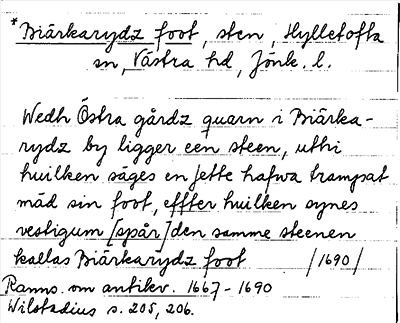 *Biärkarydz foot, sten, Hylletofta
sn, Västra hd, Jönk. l.
Wedh Östra gårdz quarn i Biärka-
rydz by ligger een steen, uthi
huilken säges en Jette hafwa trampat
mäd sin foot, effter huilken synes
vestigum [spår] den samme steenen
kallas Biärkarydz foot /1690/
Ranns. om antikv. 1667-1690
Wilstadius s. 205, 206.